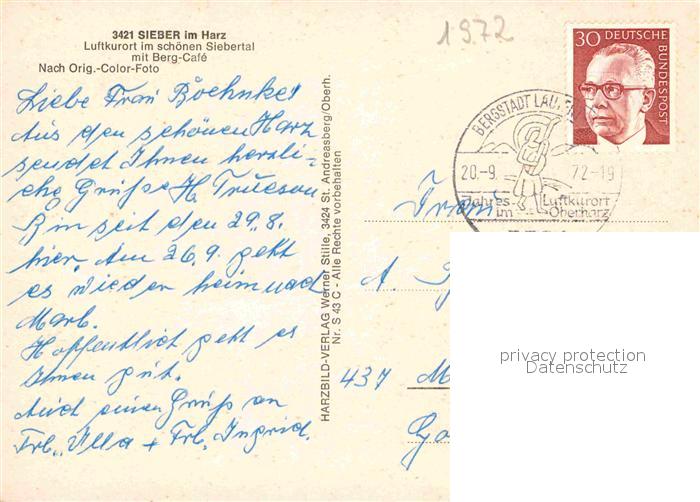 3421 SIEBER im Harz
Luftkurort im schönen Siebertal
mit Berg-Café
Nach Orig.-Color-Foto
1972
Liebe Frau Boehnke!
Aus den schönen Harz
sendet Ihnen herzli-
che Grüße H.
Bin seit den 29.8.
hier. Am 26.9. geht
es wieder heim nach
Marb.
Hoffentlich geht es
Ihnen gut.
Auch einen Gruß an
Frl. Ulla + Frl. Ingrid.
HARZBILD-VERLAG Werner Stille, 3424 St. Andreasberg/Oberh.
Nr. S 43 C - Alle Rechte vorbehalten
30 DEUTSCHE
BUNDESPOST
BERGSTADT
20.-9. 72-19
Jahres Luftkurort
im Oberharz
Frau
A.
437
privacy protection
Datenschutz